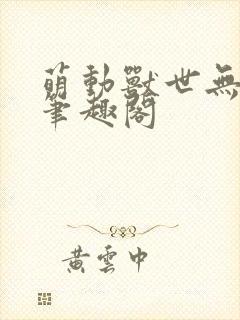 萌動獸世無
筆趣閣
黃雲中